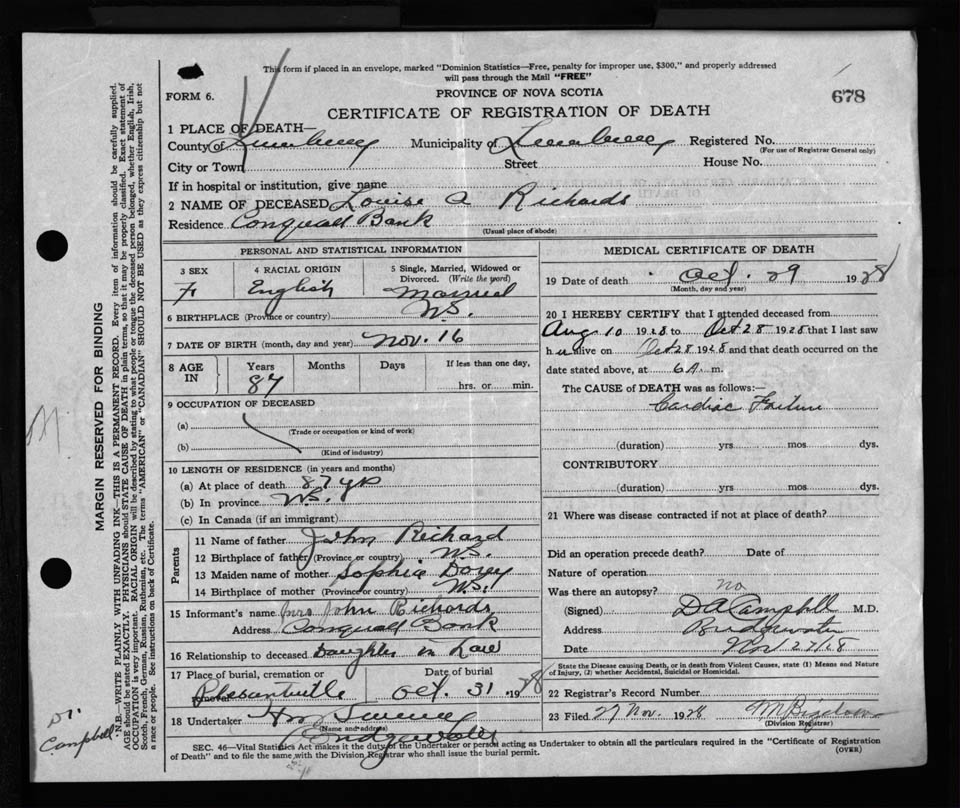 This form if placed in an envelope, marked "Dominion Statistics—Free, penalty for improper use, $300," and properly addressed
will pass through the Mail "FREE"
FORM 6.
PROVINCE OF NOVA SCOTIA
678
CERTIFICATE OF REGISTRATION OF DEATH
1 PLACE OF DEATH—
County of Lunenburg Municipality of Lunenburg Registered No.
(For use of Registrar General only)
City or Town Street House No.
If in hospital or institution, give name
2 NAME OF DECEASED Louise A Richards
Residence Conquall Bank
(Usual place of abode)
PERSONAL AND STATISTICAL INFORMATION
3 SEX 4 RACIAL ORIGIN 5 Single, Married, Widowed or Divorced. (Write the word)
F English Married
6 BIRTHPLACE (Province or country) N.S.
7 DATE OF BIRTH (month, day and year) Nov. 16
8 AGE IN Years Months Days If less than one day,
87 hrs. or min.
9 OCCUPATION OF DECEASED
(a)
(Trade or occupation or kind of work)
(b)
(Kind of industry)
10 LENGTH OF RESIDENCE (in years and months)
(a) At place of death 87 yrs
(b) In province N.S.
(c) In Canada (if an immigrant)
Parents
11 Name of father John Richard
12 Birthplace of father (Province or country) N.S.
13 Maiden name of mother Sophia Dorey
14 Birthplace of mother (Province or country) N.S.
15 Informant's name Mrs John Richards
Address Conquall Bank
16 Relationship to deceased Daughter in Law
17 Place of burial, cremation or removal Date of burial
Pleasantville Oct. 31 1928
18 Undertaker
(Name and address)
Bridgewater
MEDICAL CERTIFICATE OF DEATH
19 Date of death Oct. 29 1928
(Month, day and year)
20 I HEREBY CERTIFY that I attended deceased from
Aug 10 1928 to Oct 28 1928 that I last saw
her alive on Oct 28 1928 and that death occurred on the
date stated above, at 6 A. m.
The CAUSE of DEATH was as follows:—
Cardiac Failure
(duration) yrs mos dys.
CONTRIBUTORY
(duration) yrs. mos. dys.
21 Where was disease contracted if not at place of death?
Did an operation precede death? Date of
Nature of operation
Was there an autopsy? no
(Signed) DA Campbell M.D.
Address Bridgewater
Date Nov 27/28
State the Disease causing Death, or in death from Violent Causes, state (1) Means and Nature
of Injury, (2) whether Accidental, Suicidal or Homicidal.
22 Registrar's Record Number
23 Filed 27 Nov. 1928
(Division Registrar)
SEC. 46—Vital Statistics Act makes it the duty of the Undertaker or person acting as Undertaker to obtain all the particulars required in the "Certificate of Registration
of Death" and to file the same with the Division Registrar who shall issue the burial permit.
(OVER)
MARGIN RESERVED FOR BINDING
N.B.—WRITE PLAINLY WITH UNFADING INK—THIS IS A PERMANENT RECORD. Every item of information should be carefully supplied.
AGE should be stated EXACTLY. PHYSICIANS should STATE CAUSE OF DEATH in plain terms, so that it may be properly classified. Exact statement of
OCCUPATION is very important. RACIAL ORIGIN will be described by stating to what people or tongue the deceased person belonged, whether English, Irish,
Scotch, French, German, Russian, Ruthenian, etc. The terms "AMERICAN" or "CANADIAN" SHOULD NOT BE USED as they express citizenship but not
a race or people. See instructions on back of Certificate.
Dr.
Campbell